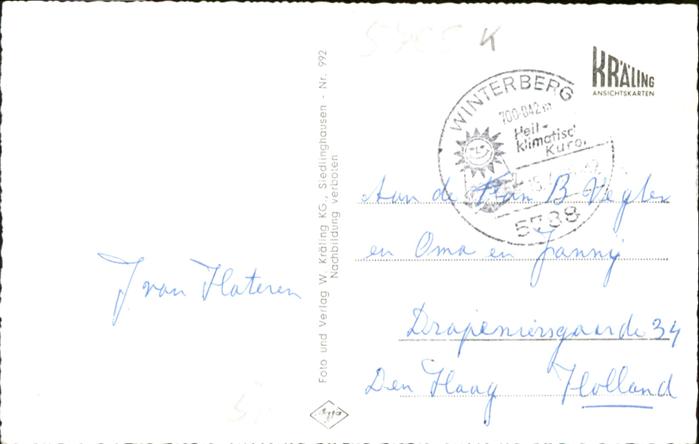 5955 K
KRÄLING
ANSICHTSKARTEN
WINTERBERG
700-842 m
Heil-
klimatisch
Kuro
5788
Aan de Fam B. Vegter
en Oma en Janny
Drapeniersgaarde 34
Den Haag Holland
J van Hateren
Foto und Verlag W. Kräling KG., Siedlinghausen - Nr. 992
Nachbildung verboten
Agfa